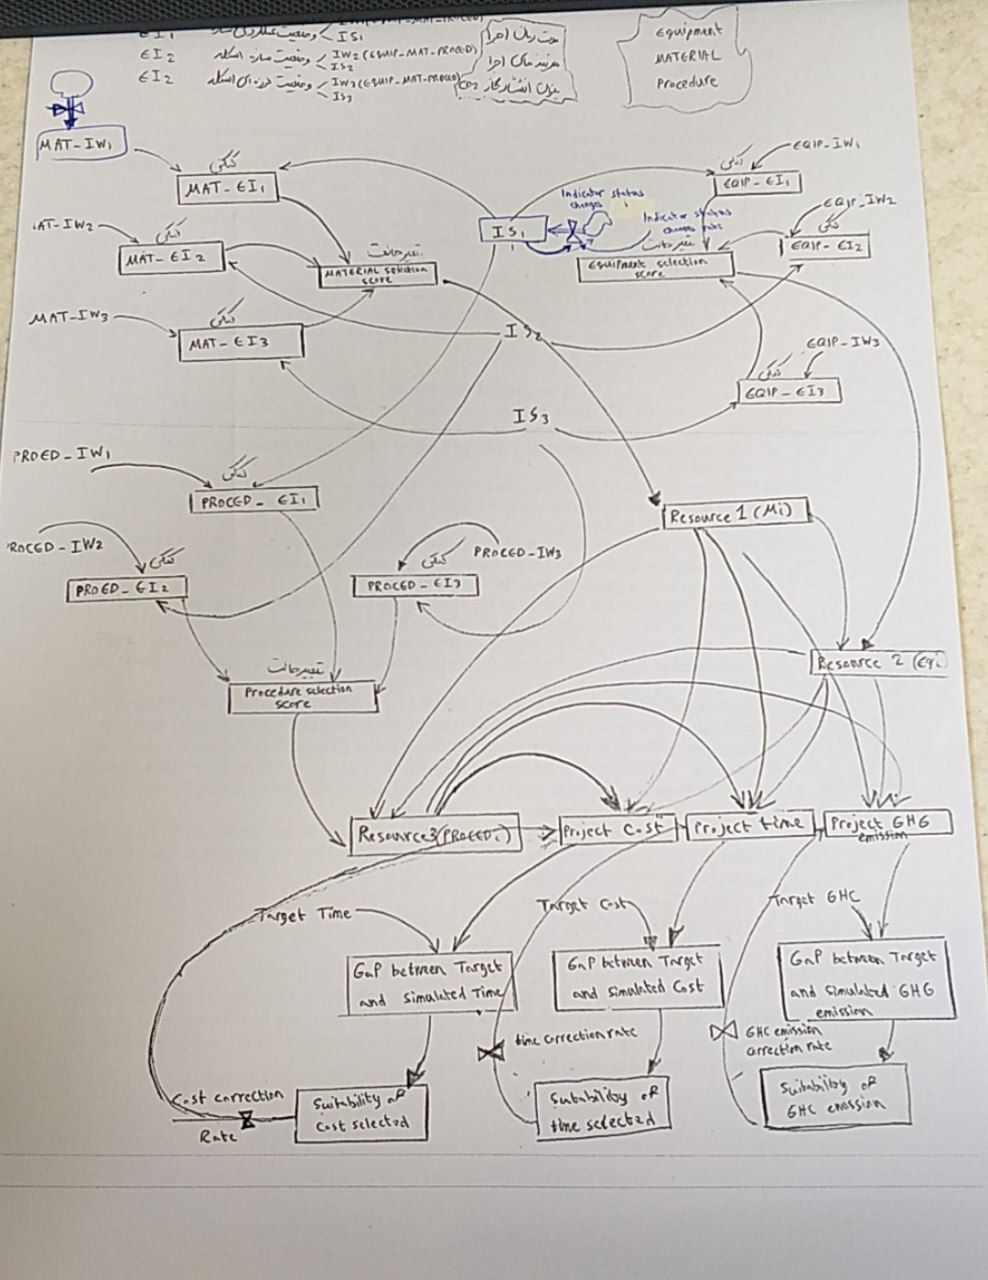 EI1
IS1
EI2
وضعیت سازه اسکله
IW2 (EQUIP-MAT-PROCED)
IS2
EI2
IW3 (EQUIP-MAT-PROCED)
IS3
مدت زمان اجرا
هزینه‌های اجرا
میزان انتشار گاز CO2
Equipment
MATERIAL
Procedure
MAT-IW1
کنگی
MAT-EI1
EQIP-IW1
EQIP-EI1
IS1
Indicator status changes
Indicator status changes rate
AT-IW2
کنگی
MAT-EI2
تغییر حالت
MATERIAL selection
score
تغییر حالت
Equipment selection
score
EQIP-IW2
کنگی
EQIP-EI2
MAT-IW3
کنگی
MAT-EI3
IS2
EQIP-IW3
کنگی
EQIP-EI3
IS3
PROED-IW1
کنگی
PROCED-EI1
Resource 1 (Mi)
ROCED-IW2
کنگی
PROED-EI2
PROCED-IW3
کنگی
PROCED-EI3
Resource 2 (Eqi
تغییر حالت
Procedure selection
score
Resource3(PROCEDi)
Project Cost
Project time
Project GHG
emission
Target Time
Target Cost
Target GHC
GaP between Target
and simulated Time
GaP between Target
and simulated Cost
GaP between Target
and simulated GHG
emission
time correction rate
GHC emission
correction rate
Cost correction
Rate
Suitability of
Cost selected
Sutability of
time selected
Suitability of
GHC emission